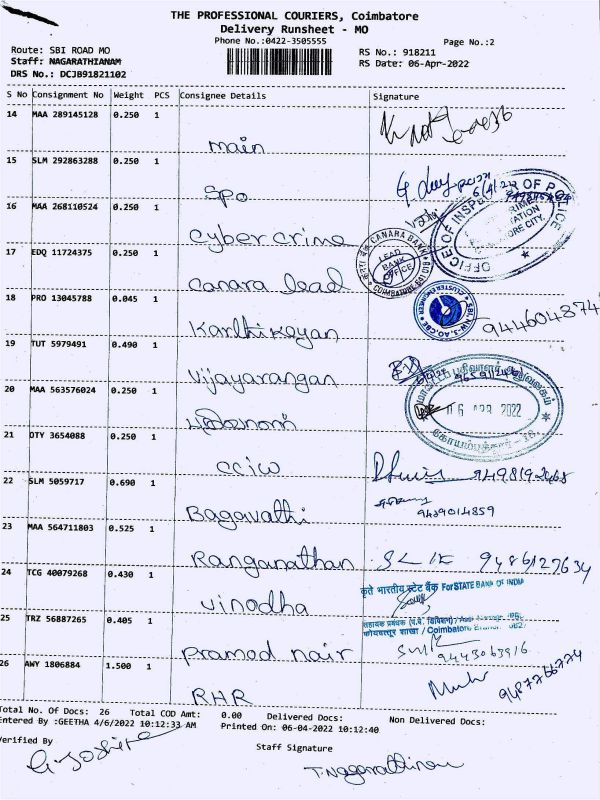 THE PROFESSIONAL COURIERS, Coimbatore
Delivery Runsheet - MO
Phone No.:0422-3505555
Page No.:2
Route: SBI ROAD MO
RS No.: 918211
Staff: NAGARATHIANAM
RS Date: 06-Apr-2022
DRS No.: DCJB91821102
S No Consignment No Weight PCS Consignee Details Signature
14 MAA 289145128 0.250 1
main
15 SLM 292863288 0.250 1
SPO
16 MAA 268110524 0.250 1
Cyber crime
OFFICE OF INSPECTOR OF POLICE
17 EDQ 11724375 0.250 1
Canara lead
CANARA BANK
LEAD BANK OFFICE
COIMBATORE
18 PRO 13045788 0.045 1
Karthikeyan
9446048374
19 TUT 5979491 0.490 1
Vijayarangan
20 MAA 563576024 0.250 1
06 APR 2022
21 OTY 3654088 0.250 1
CCIW
22 SLM 5059717 0.690 1
Bagavathi
9489014859
23 MAA 564711803 0.525 1
Ranganathan
9486127634
24 TCG 40079268 0.430 1
vinodha
कृते भारतीय स्टेट बैंक For STATE BANK OF INDIA
25 TRZ 56887265 0.405 1
कोयम्बत्तूर शाखा / Coimbatore Branch
pramod nair
9443063916
26 AWY 1806884 1.500 1
RHR
9487766774
Total No. Of Docs: 26 Total COD Amt: 0.00 Delivered Docs: Non Delivered Docs:
Entered By :GEETHA 4/6/2022 10:12:33 AM Printed On: 06-04-2022 10:12:40
Verified By
Staff Signature
T.Nagarathinam